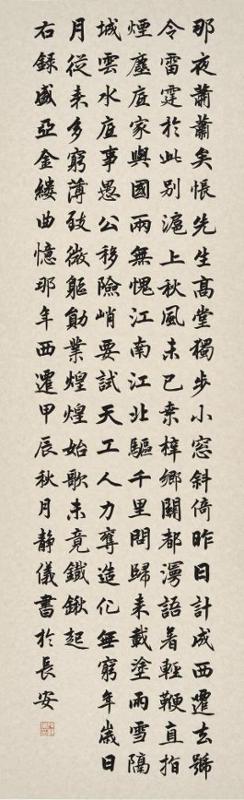 那夜蕭蕭矣悵先生高堂獨步小窗斜倚昨日計成西遷去號
令雷霆於此別滬上秋風未已桒梓鄉關都漫語著輕鞭直指
煙塵底家與國兩無愧江南江北驅千里問歸来載塗雨雪隔
城雲水底事愚公移險峭要試天工人力奪造化無窮年歲日
月從来多窮薄微軀勛業煌煌始歌未竟鐵鍬起
右錄盛亞金縷曲憶那年西遷甲辰秋月靜儀書於長安